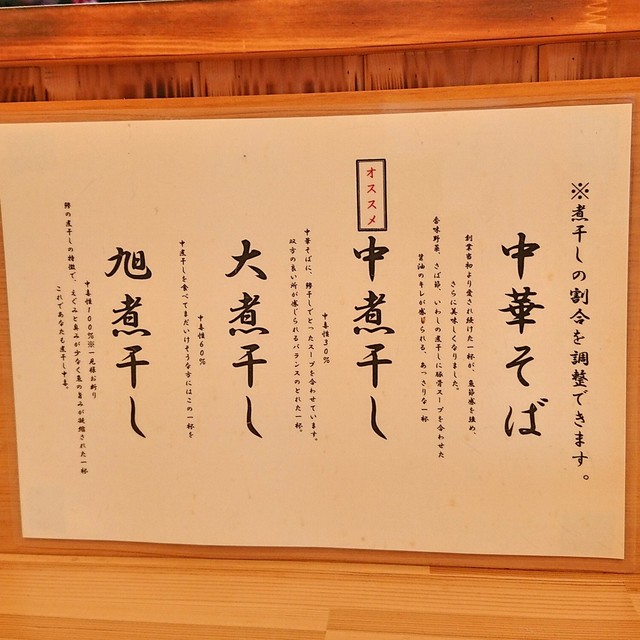 ※煮干しの割合を調整できます。
中華そば
創業当初より愛され続けた一杯が、魚節感を強め、
さらに美味しくなりました。
香味野菜、さば節、いわしの煮干しに豚骨スープを合わせた
醤油のキレが感じられる、あっさりな一杯
オススメ
中煮干し
中毒性30%
中華そばに、鰺干しでとったスープを合わせています。
双方の良い所が感じられるバランスのとれた一杯。
大煮干し
中毒性60%
中煮干しを食べてまだいけそうな方にはこの一杯を
旭煮干し
中毒性100%※一見様お断り
鰺の煮干しの特徴で、えぐみと臭みが少なく魚の旨みが凝縮された一杯
これであなたも煮干し中毒。